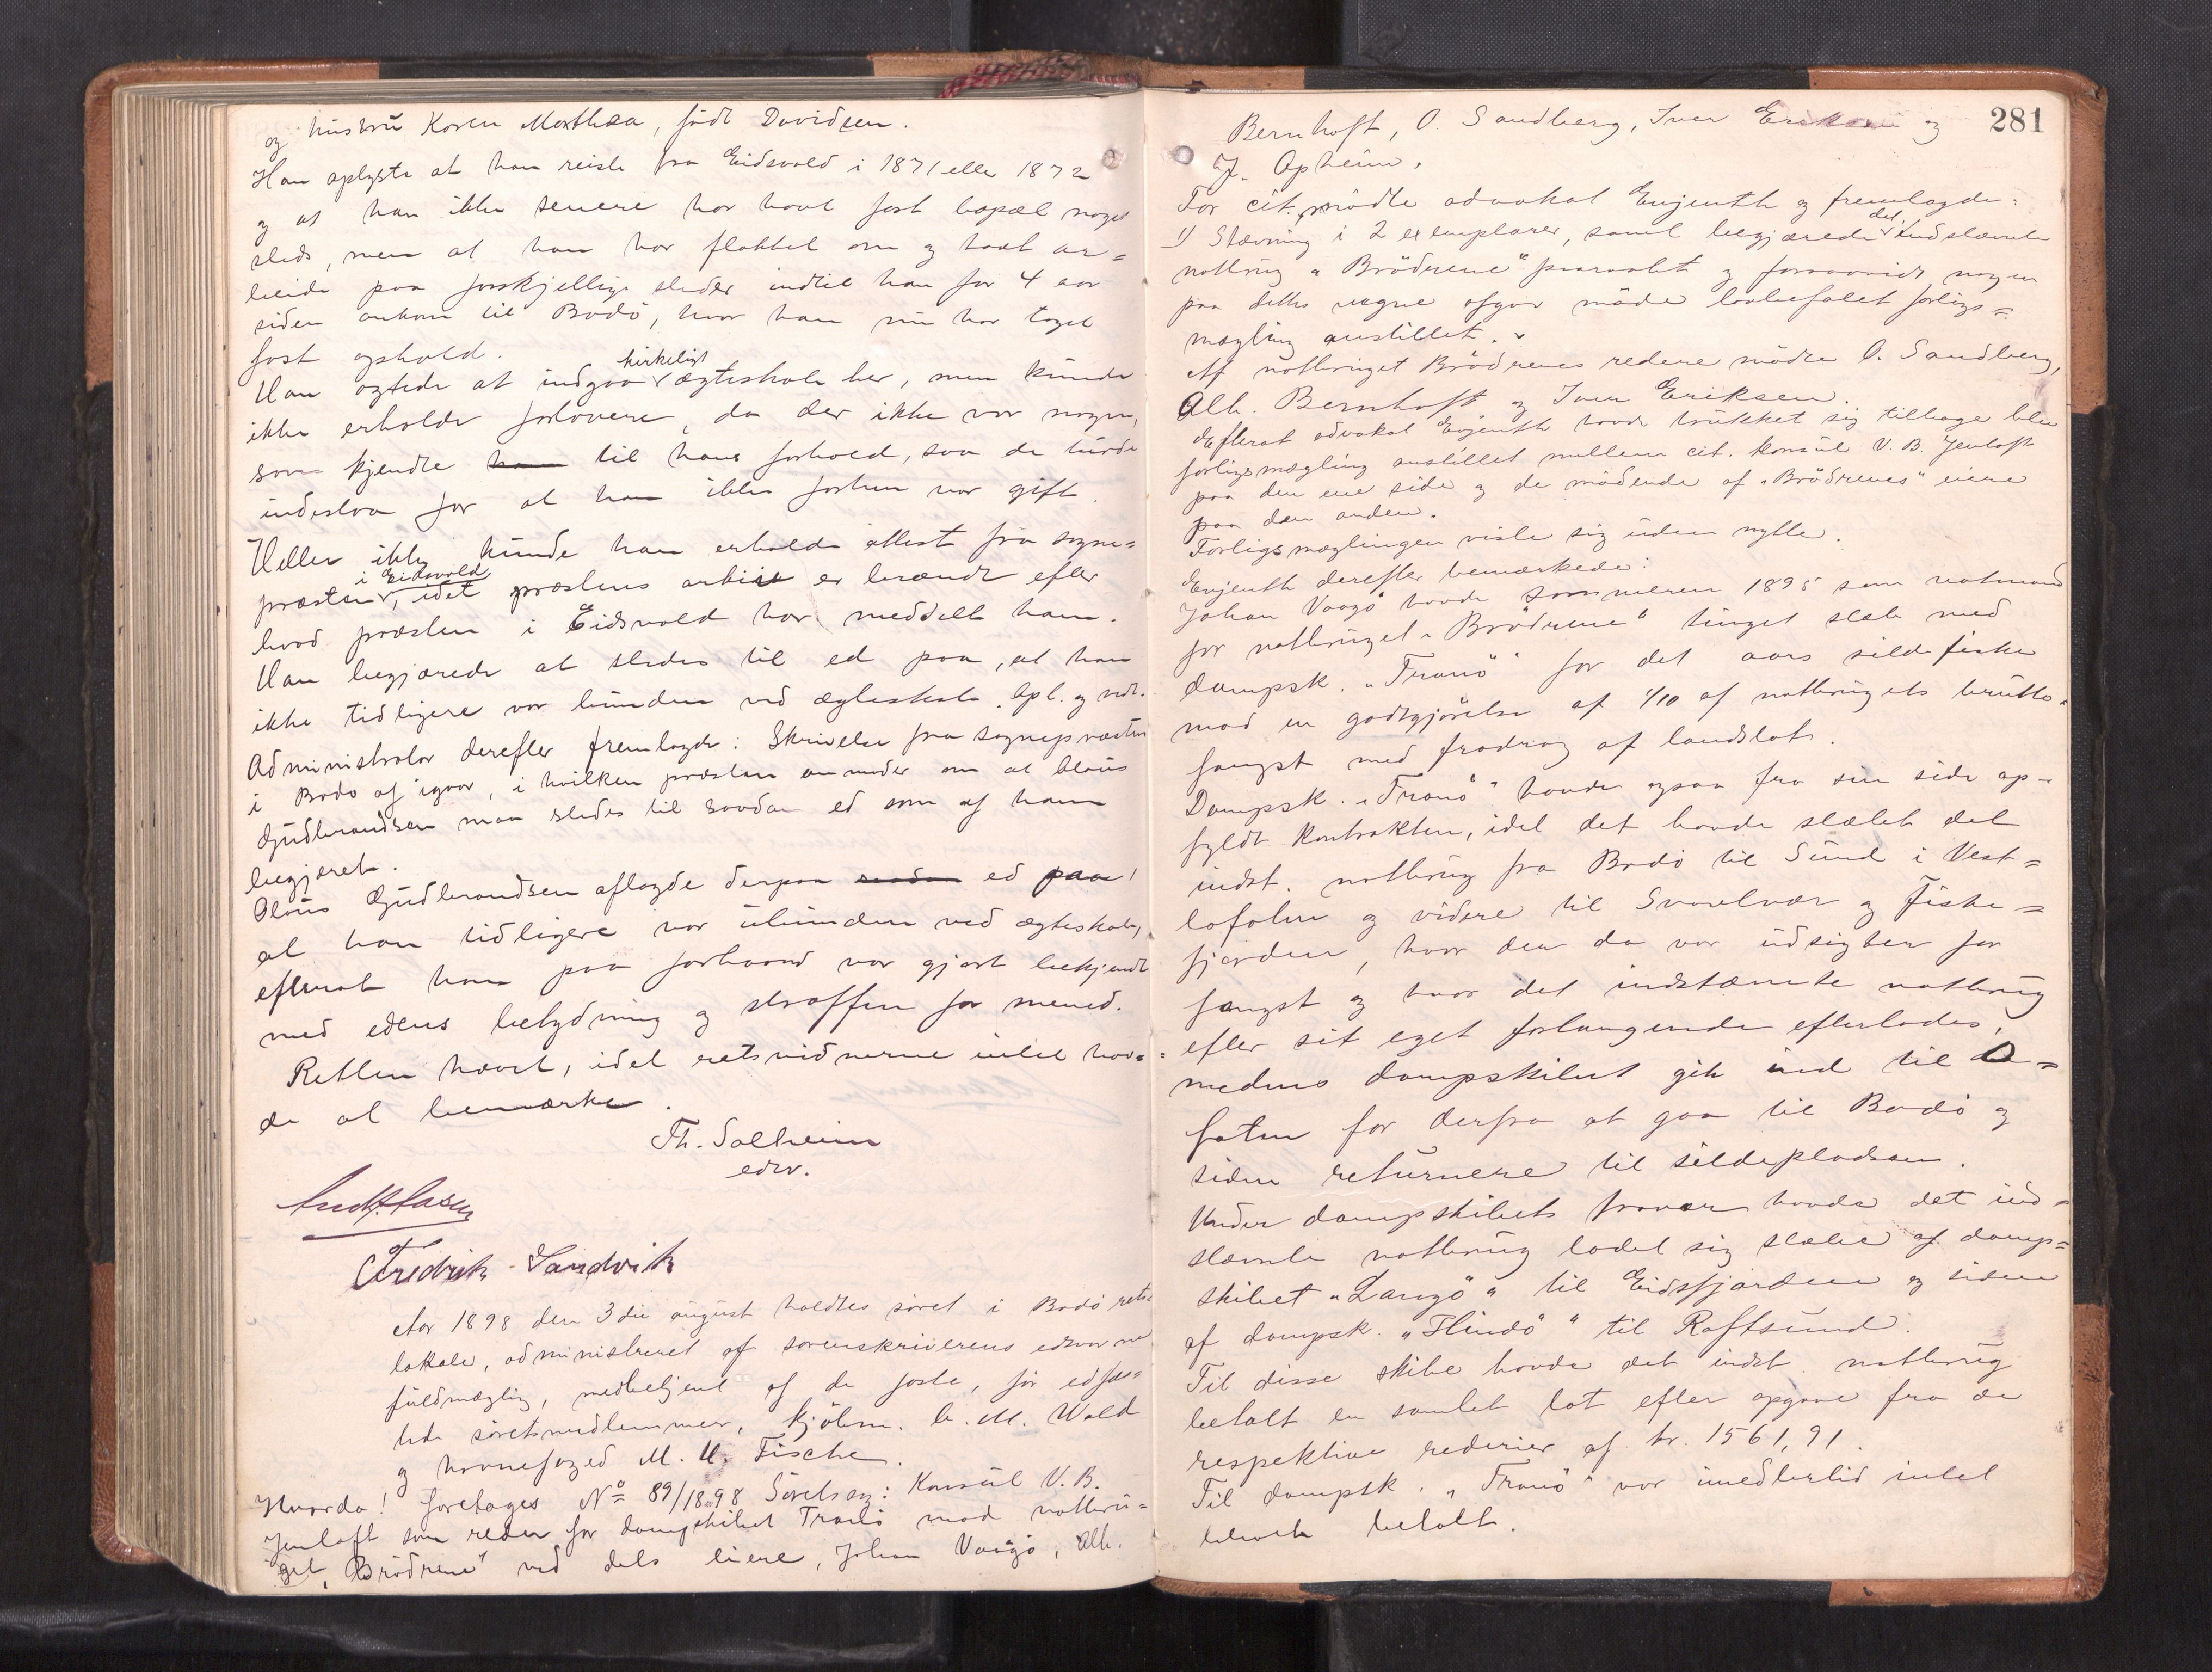 og hustru Karen Marthea, född Davidsen.
Han oplyste at han reiste fra Eidsvold i 1871 eller 1872
og at han ikke senere har havt fast bopæl noget
steds, men at han har flakket om og havt ar=
beide paa forskjellige steder indtil han for 4 aar
siden ankom til Bodö, hvor han nu har taget
fast ophold.
Han agtede at indgaa kirkeligt ægteskab her, men kunde
ikke erholde forlovere, da der ikke var nogen,
som kjendte ham til hans forhold, saa de turde
indestaa for at han ikke forhen var gift.
Heller ikke kunde han erholde attest fra sogne=
præsten i Eidsvold, idet præstens arkiv er brændt efter
hvad præsten i Eidsvold har meddelt ham.
Han begjærede at stedes til ed paa, at han
ikke tidligere var bunden ved ægteskab. Opl. og vedt.
Administrator derefter fremlagde: Skrivelse fra sognepræsten
i Bodö af igaar, i hvilken præsten anmoder om at Olaus
Gudbrandsen maa stedes til saadan ed som af ham
begjæret.
Olaus Gudbrandsen aflagde derpaa saadan ed paa,
at han tidligere var ubunden ved ægteskab,
efterat han paa forhaand var gjort bekjendt
med edens betydning og straffen for mened.
Retten hævet, idet retsvidnerne intet hav=
de at bemærke.
Th. Solheim
edsv.
Fredrik Sandvik
Aar 1898 den 3die august holdtes sjöret i Bodö rets
lokale, administreret af sorenskriverens edsvorne
fuldmægtig, medbetjent af de faste, för edfæ=
stede sjöretsmedlemmer, kjöbm. C. M. Wold
og havnefoged M. U. Fischer.
Hvorda! foretoges No 89/1898 Sjöretssag: Konsul V. B.
Jentoft som reder for dampskibet Tranö mod notbru=
get "Brödrene" ved dets eiere, Johan Vaagö, Alb.
281
Bernhoft, O. Sandberg, Iver Eriksen og
J. Opheim.
For cit. mödte advokat Evjenth og fremlagde:
1) Stævning i 2 exemplarer, samt begjærede det indstævnte
notbrug "Brödrene" paaraabt og forsaavidt nogen
paa dettes vegne afgav möde lovbefalet forligs=
mægling anstillet.
Af notbruget Brödrenes redere mödte O. Sandberg,
Alb. Bernhoft og Iver Eriksen.
Efterat advokat Evjenth havde trukket sig tilbage blev
forligsmægling anstillet mellem cit. konsul V. B. Jentoft
paa den ene side og de mödende af "Brödrenes" eiere
paa den anden.
Forligsmæglingen viste sig uden nytte.
Evjenth derefter bemærkede:
Johan Vaagö havde sommeren 1895 som notmand
for notbruget "Brödrene" tinget slæb med
dampsk. "Tranö" for det aars sildefiske
mod en godtgjörelse af 1/10 af notbrugets brutto=
fangst med fradrag af landslot.
Dampsk. "Tranö" havde ogsaa fra sin side op=
fyldt kontrakten, idet det havde slæbt det
indst. notbrug fra Bodö til Sund i Vest=
lofoten og videre til Svolvær og Fiske=
fjorden, hvor der da var udsigter for
fangst og hvor det indstævnte notbrug
efter sit eget forlangende efterlodes,
medens dampskibet gik ind til O=
foten for derfra at gaa til Bodö og
siden returnere til sildepladsen.
Under dampskibets fravær havde det ind=
stævnte notbrug ladet sig slæbe af damp=
skibet "Langö" til Eidsfjorden og siden
af dampsk. "Hindö" til Raftsund.
Til disse skibe havde det indst. notbrug
betalt en samlet lot efter opgave fra de
respektive rederier af kr. 1561,91.
Til dampsk. "Tranö" var imidlertid intet
blevet betalt.